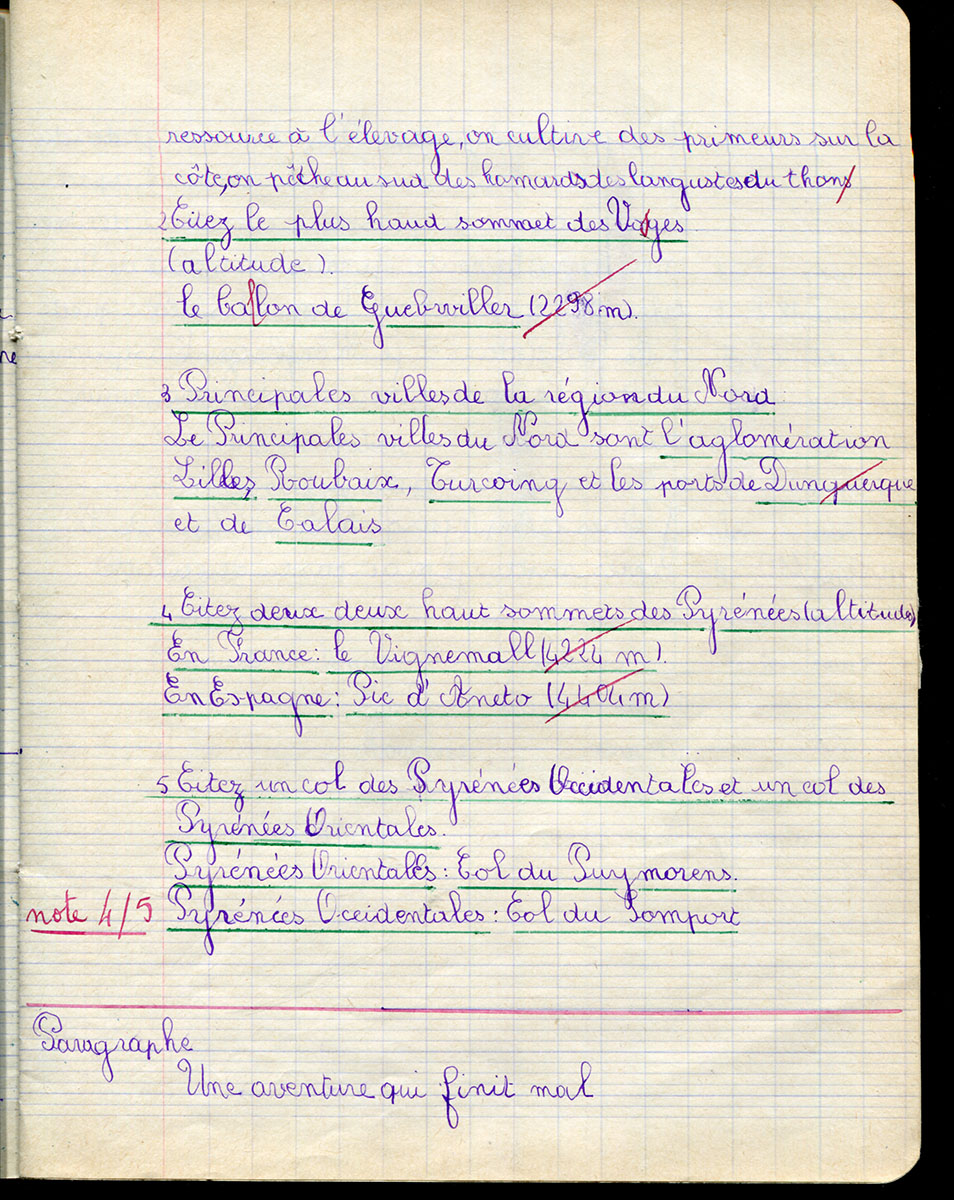 ressource à l'élevage, on cultive des primeurs sur la
côte, on pêche au sud des homards des langustes du thons
2 Citez le plus haud sommet des Vosges
(altitude).
le ballon de Guebwiller (2298 m).
3 Principales villes de la région du Nord
Le Principales villes du Nord sont l'aglomération
Lilles, Roubaix, Turcoing et les ports de Dunguerque
et de Calais
4 Citez deux deux haut sommets des Pyrénées (altitude)
En France: le Vignemall (4224 m).
En Espagne: Pic d'Aneto (4404 m)
5 Citez un col des Pyrénées Occidentales et un col des
Pyrénées Orientales.
Pyrénées Orientalles: Col du Puymorens.
note 4/5 Pyrénées Occidentales: Col du Somport
Paragraphe
Une aventure qui finit mal